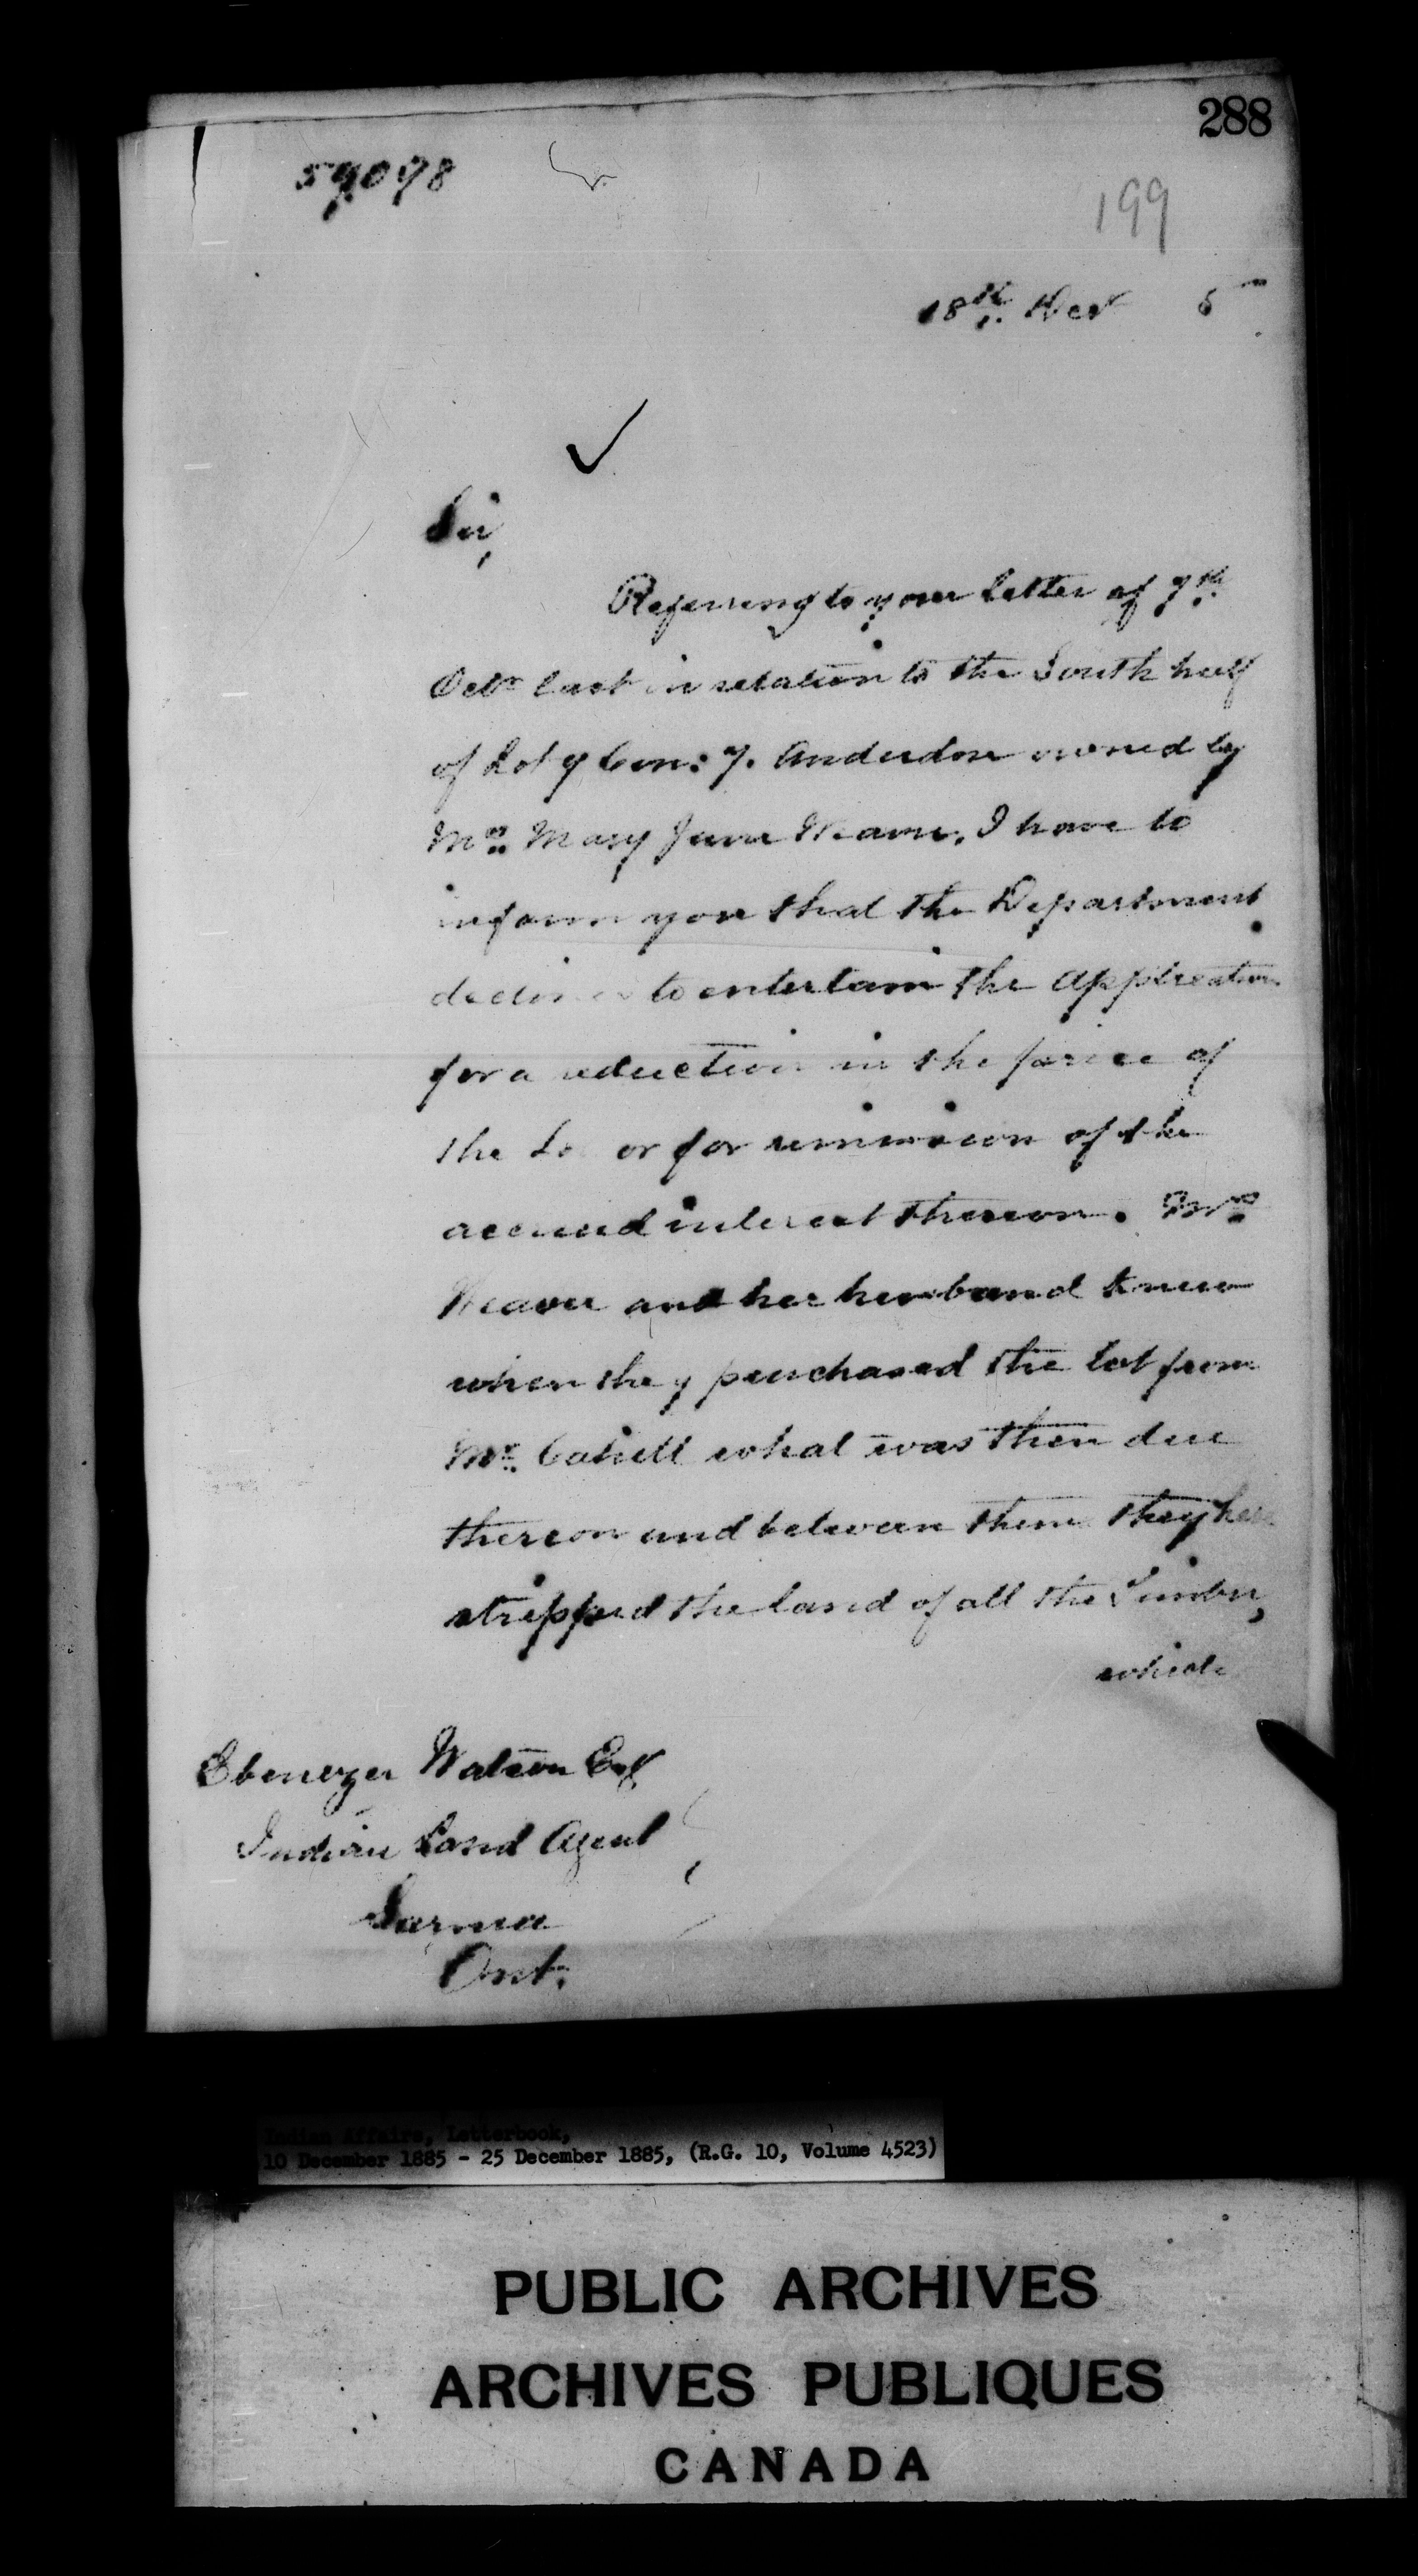 288
59078
199
18th Decr 5
Sir,
Referring to your letter of 7th
Octr last in relation to the South half
of Lot 9 Con: 7. Anderdon owned by
Mrs Mary Jane Weaver, I have to
inform you that the Department
declines to entertain the application
for a reduction in the price of
the Lo or for remission of the
accrued interest thereon. Mrs
Weaver and her husband knew
when they purchased the lot from
Mr. Cahill what was then due
thereon and between them they have
stripped the land of all the Timber,
which
Ebenezer Watson Esq
Indian Land Agent
Sarnia
Ont.
Indian Affairs, Letterbook,
10 December 1885 - 25 December 1885, (R.G. 10, Volume 4523)
PUBLIC ARCHIVES
ARCHIVES PUBLIQUES
CANADA